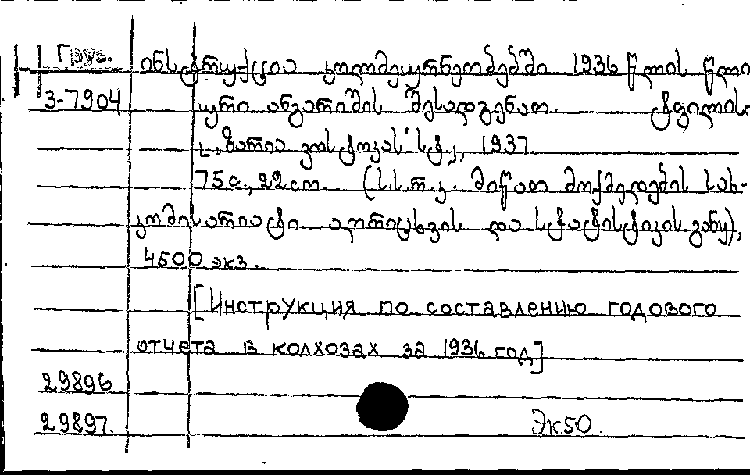 Груз. ინსტრუქცია კოლმეურნეობებში 1936 წლის წლი
3-7904 ური ანგარიშის შესადგენათ. ტფილისი
1937
75 с., 22 см. (ს.ს.რ.კ. მიწათ მოქმედების სახ-
კომისარიატი აღრიცხვის და სტატისტიკის განყ),
4500 экз.
[Инструкция по составлению годового
отчета в колхозах за 1936 год]
29896
29897. Эк50.